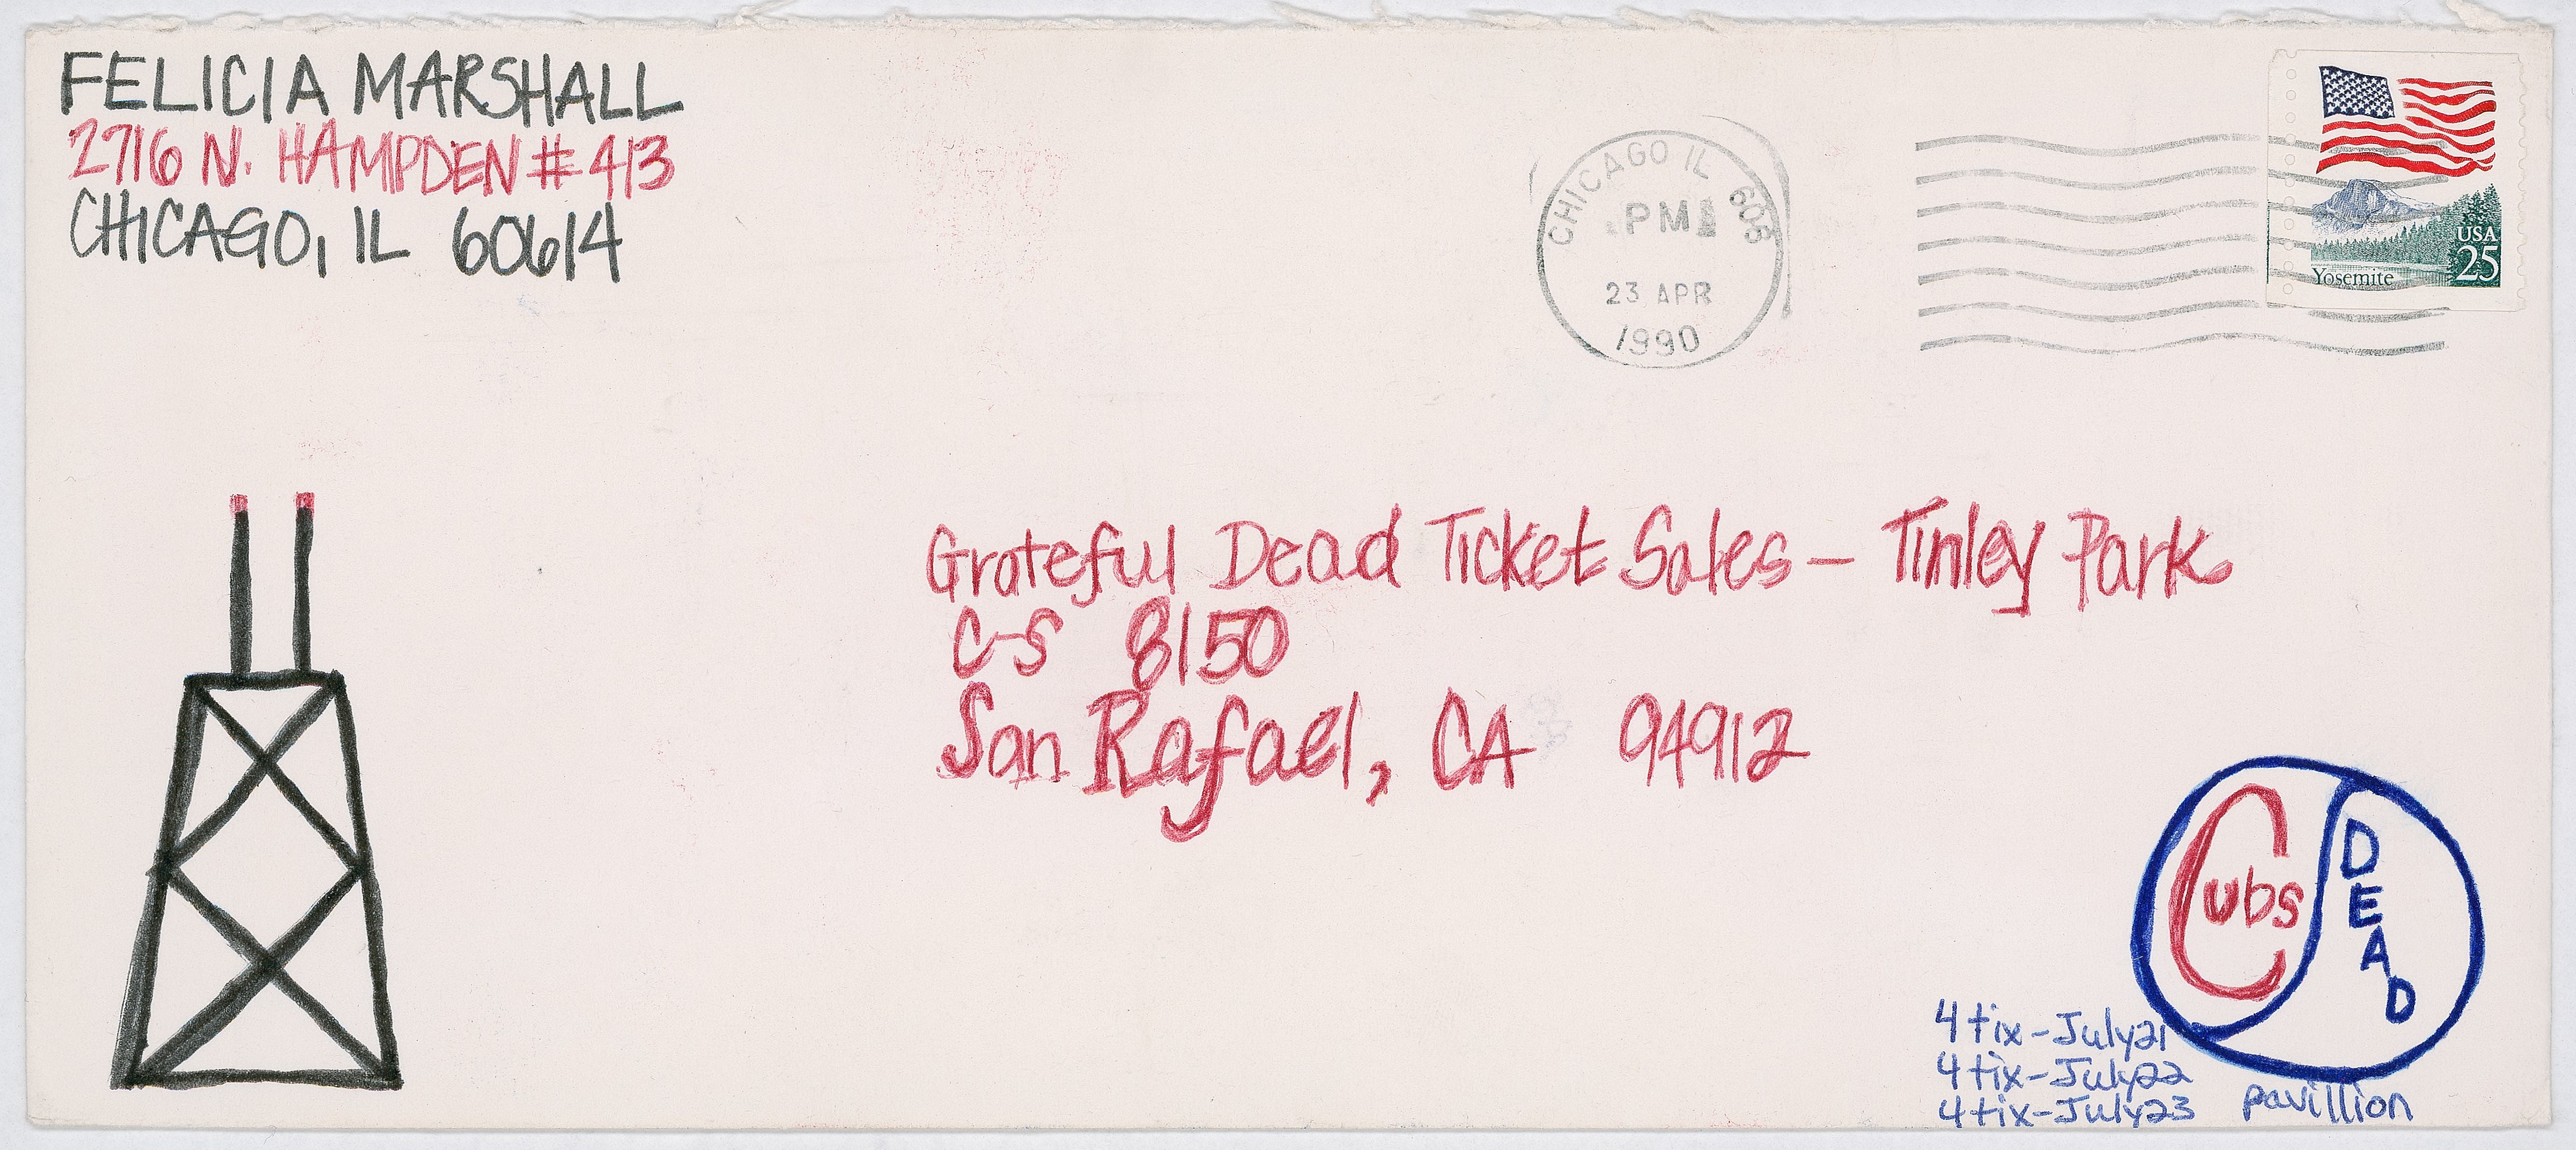 FELICIA MARSHALL
2716 N. HAMPDEN # 413
CHICAGO, IL 60614
CHICAGO IL 606
PM
23 APR
1990
USA
25
Yosemite
Grateful Dead Ticket Sales – Tinley Park
C-S 8150
San Rafael, CA 94912
Cubs
DEAD
4 tix - July 21
4 tix - July 22
4 tix - July 23
pavillion